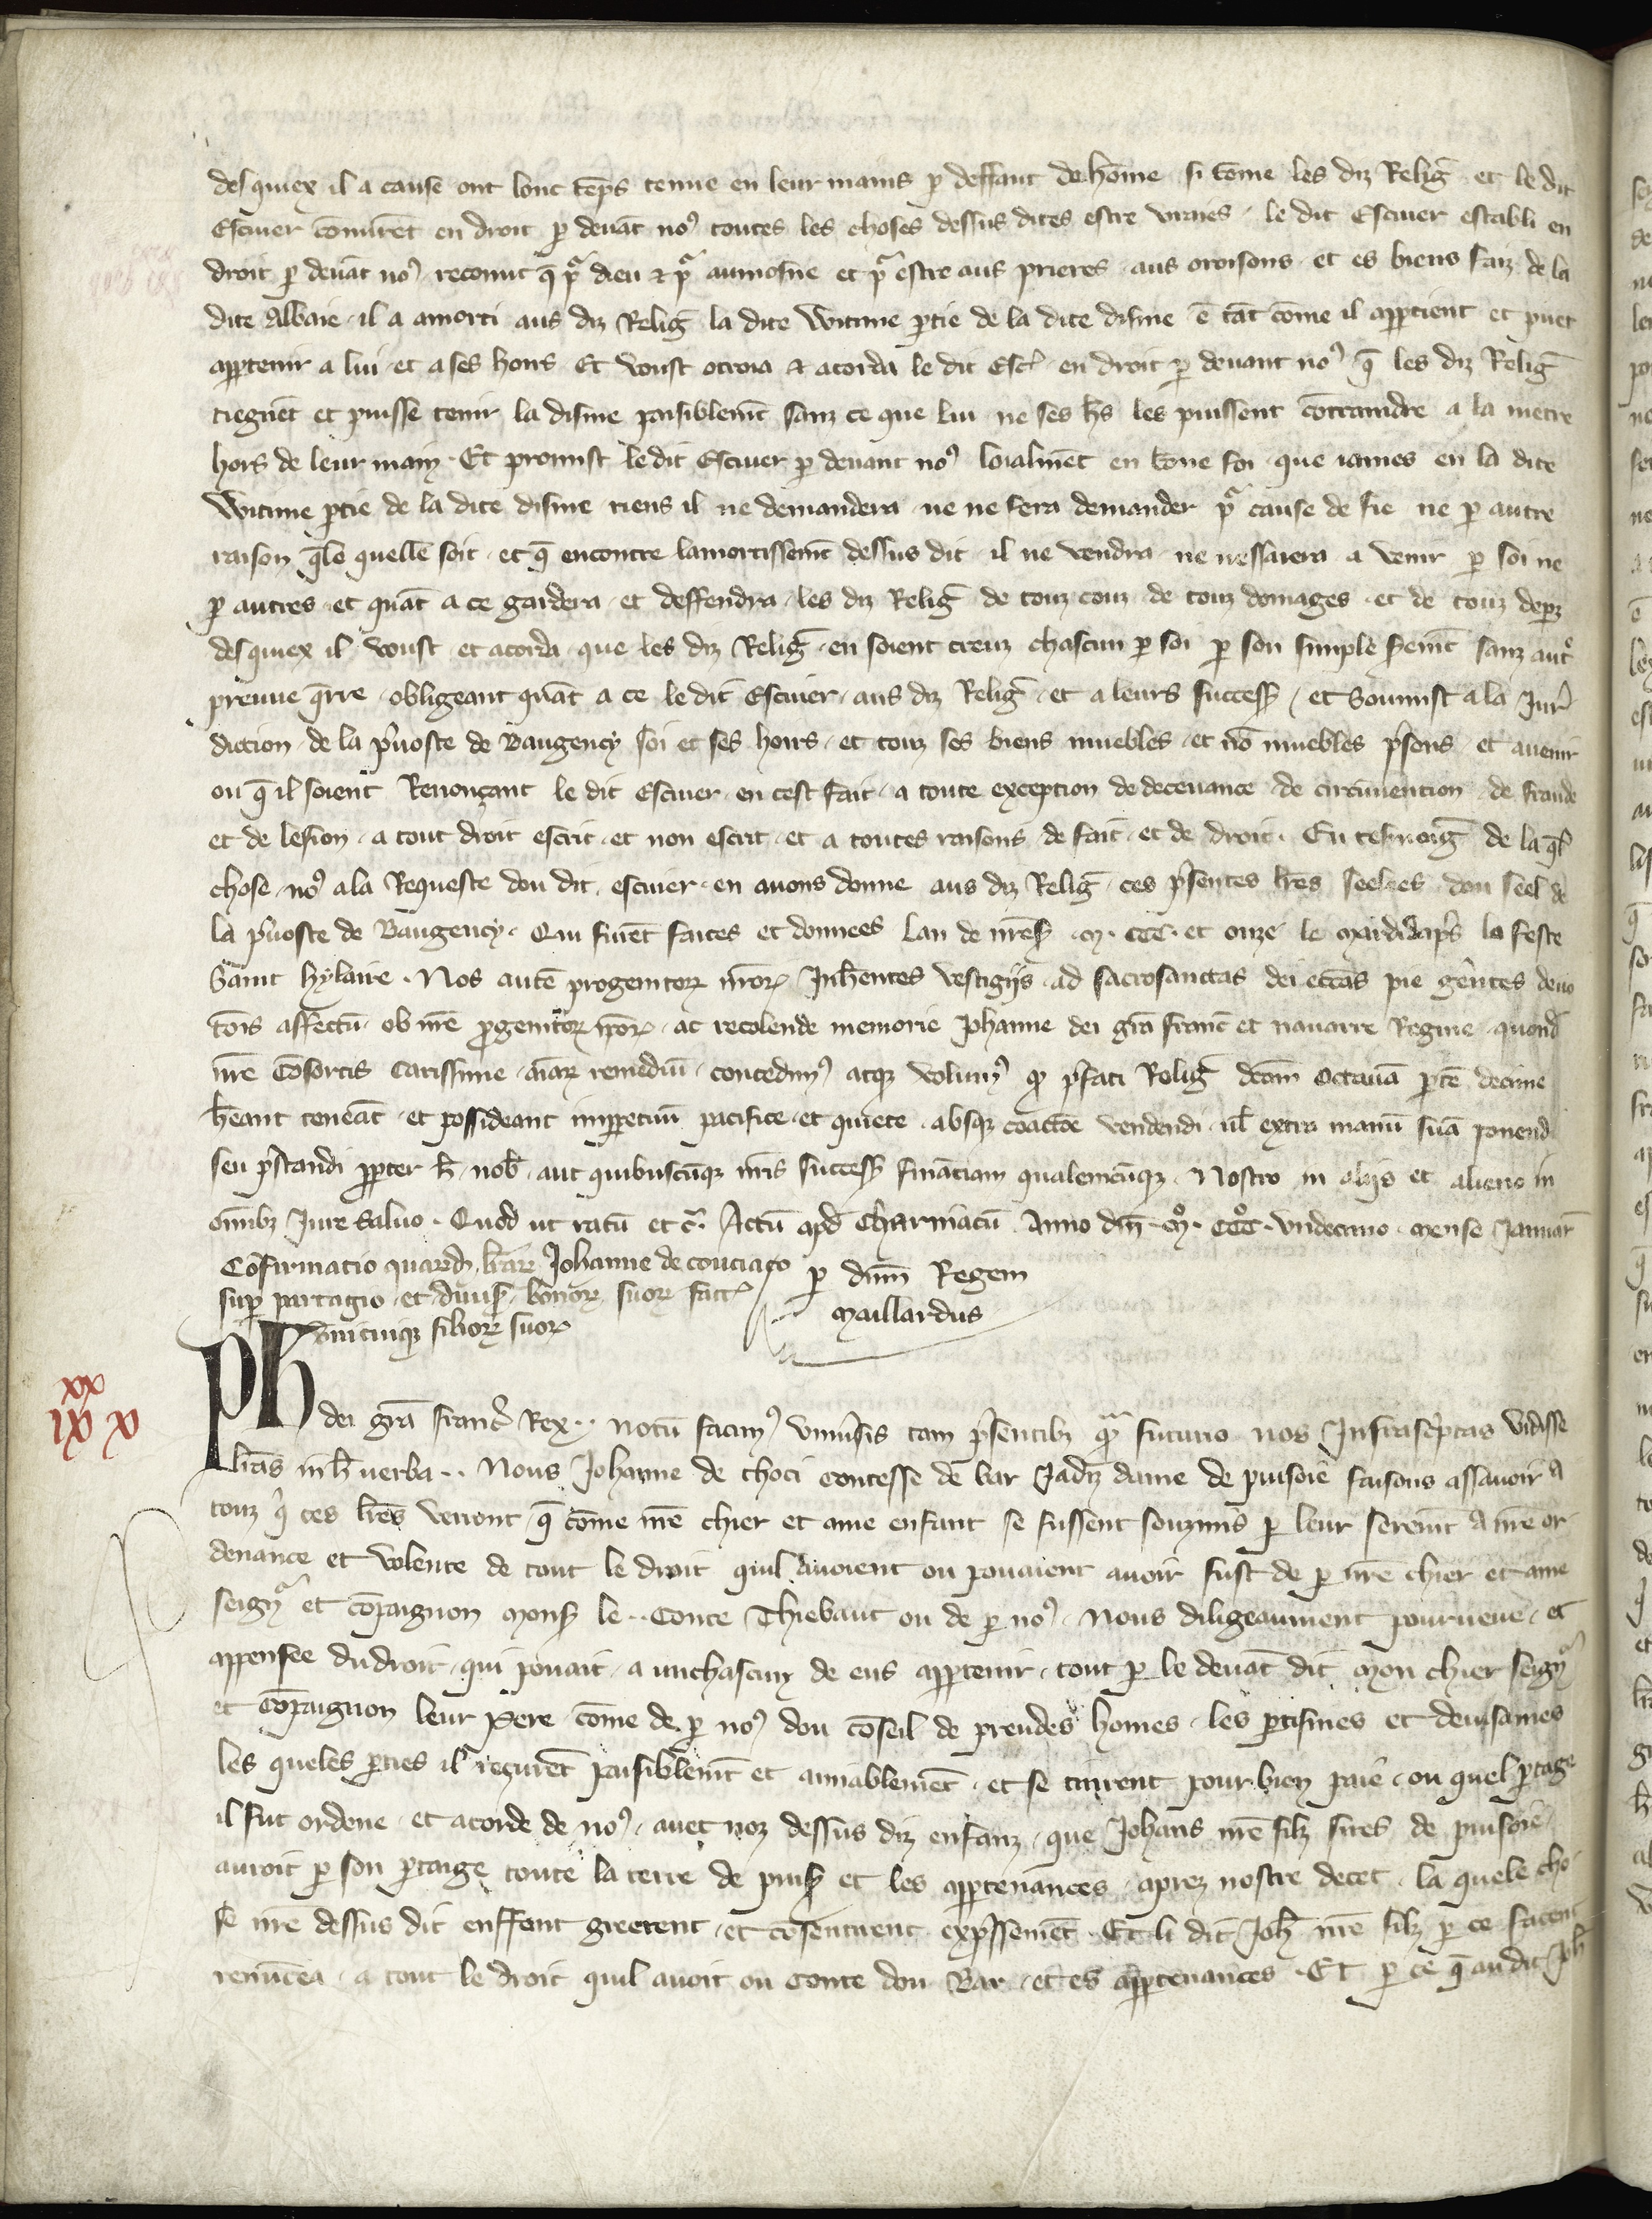 des quiex il a cause ont lonc tēps tenue en leur mains ꝑ deffaut de hōme si cōme les diz Religˉ et le dit
Escuier cōnurēt en droit ꝑ deuāt noꝰ toutes les choses dessus dites estre uraies le dit Escuier establi en
droit ꝑ deuāt noꝰ reconut q̄ pͬ dieu ⁊ pͬ aumosne et pͬ estre aus prieres aus oroisons et es biens faiz de la
dite Abbaie il a amorti aus diz Religˉ la dite Witime ꝑtie de la dite disme ē tāt cōme il apꝑtient et puet
apꝑtenir a lui et a ses hoirs Et voust otroia ⁊ acorda le dit Escˀ en droit ꝑ deuant noꝰ q̄ les diz Religˉ
tiegnēt et puisse tenir la disme paisiblemt̄ sanz ce que lui ne ses hˉs les puissent cōtraindre a la metre
hors de leur main · Et promist le dit Escuier ꝑ deuant noꝰ loialmēt en bōne foi que iames en la dite
Witime ꝑtie de la dite disme riens il ne demandera ne ne fera demander pͬ cause de fie ne ꝑ autre
raison q̄le quelle soit et q̄ encontre lamortissemt̄ dessus dit il ne vendra ne nessaiera a venir ꝑ soi ne
ꝑ autres et quāt a ce gardera et deffendra les diz Religˉ de touz couz de touz domages et de touz depꝫ
des quiex il voust et acorda que les diz Religˉ en soient creuz chascun ꝑ soi ꝑ son simple seremt̄ sanz autˀ
preuue q̄rre obligeant quāt a ce le dit Escuier aus diz Religˉ et a leurs successˀ et soumist a la Jurˀ
diction de la pˀuoste de Baugency soi et ses hoirs et touz ses biens muebles et nō muebles pˀsens et auenir
ou q̄ il soient Renonçant le dit Escuier en cest fait a toute exception de deceuance de circūuention de fraude
et de lesion a tout droit escrit et non escrit et a toutes raisons de fait et de droit · En tesmoigˉ de la q̄lˀ
chose noꝰ a la Requeste dou dit escuier en auons donne aus diz Religˉ ces pˀsentes lr̄es seelees dou seel de
la pˀuoste de Baugency · Qui furēt faites et donnees Lan de nr̄eSˀ · M · CCC · et onze le mardi dapˀs la feste
Saint hylaire · Nos autē progenitorꝝ nr̄orꝝ Inhˉentes vestigiis ad sacrosanctas dei ecc̄as pie gˀentes deuo
tōis affectū ob nr̄e ꝓgenitorꝝ nr̄orꝝ ac recolende memorie Johanne dei grā Francˉ et nauarre Regine quondˉ
nr̄e Cōsortis Carissime āīarꝝ remediū concedimꝰ atqꝫ volumꝰ ꝙ pˀfati Religˉ dc̄am Octauā ꝑtē decime
hˉeant teneāt et possideant imꝑpetuū pacifice et quiete absqꝫ coactōe vendendi ul̄ extra manū suā ponendˉ
seu pˀstandi ꝓpter hˉ nobˉ aut quibuscūqꝫ nr̄is successˀ finātiam qualemcūqꝫ · Nostro in aliis et alieno in
omībꝫ Jure saluo · Quod ut ratū et cˀ · Actū apdˉ Charniacū Anno dn̄i · Mº · CCCº · vndecimo mense Januarˉ
Cōfirmatio quarūdˉ lr̄arꝝ Johanne de couciaco
suꝑ partagio et diuisˀ bonorꝝ suorꝝ factˀ
vnicuiqꝫ filiorꝝ suorꝝ
ꝑ dn̄m Regem
Maillardus
xx
ix xi x
PH dei grā francˀ Rex ·· notū facimꝰ vniuˀsis tam pˀsentibꝫ qͣ futuris nos Infrascˀptas vidisse
lr̄as in hˉ uerba ·· Nous Johanne de choci contesse de bar Jadiz dame de puisoie faisons assauoir a
touz qˀ ces lr̄es verront q̄ cōme nr̄e chier et ame enfant se fussent souzmis ꝑ leur seremt̄ a nr̄e or
denance et volente de tout le droit quil auoient ou pouaient auoir fust de ꝑ nr̄e chier et ame
seignͬ et cōpaignon monsˀ le ·· Conte Thiebaut ou de ꝑ noꝰ · Nous diligeaument pourueue et
appensee du droit qui pouait a unchascun de eus apꝑtenir tout ꝑ le deuāt dit mon chier seignͬ
et cōpaignon leur Pere cōme de ꝑ noꝰ dou cōseil de preudes homes les ꝑtismes et deuisames
les queles ꝑties il reçurēt paisiblemt̄ et amiablemēt et se tinrent pour bien paie ou quel ꝑtage
il fut ordene et acorde de noꝰ auec noz dessus diz enfanz que Johans nr̄e filz sires de puisoie
auroit ꝑ son ꝑtaige toute la terre de puisˀ et les apꝑtenances aprez nostre decet la quele cho
se nr̄e dessus dit enffant greerent et cōsentirent expˀssemēt · Et li dit Johˉ nr̄e filz ꝑ ce facent
renūcea a tout le droit quil auoit ou Conte dou Bar et es apꝑtenances · Et ꝑ ce q̄ au dit Johˉ